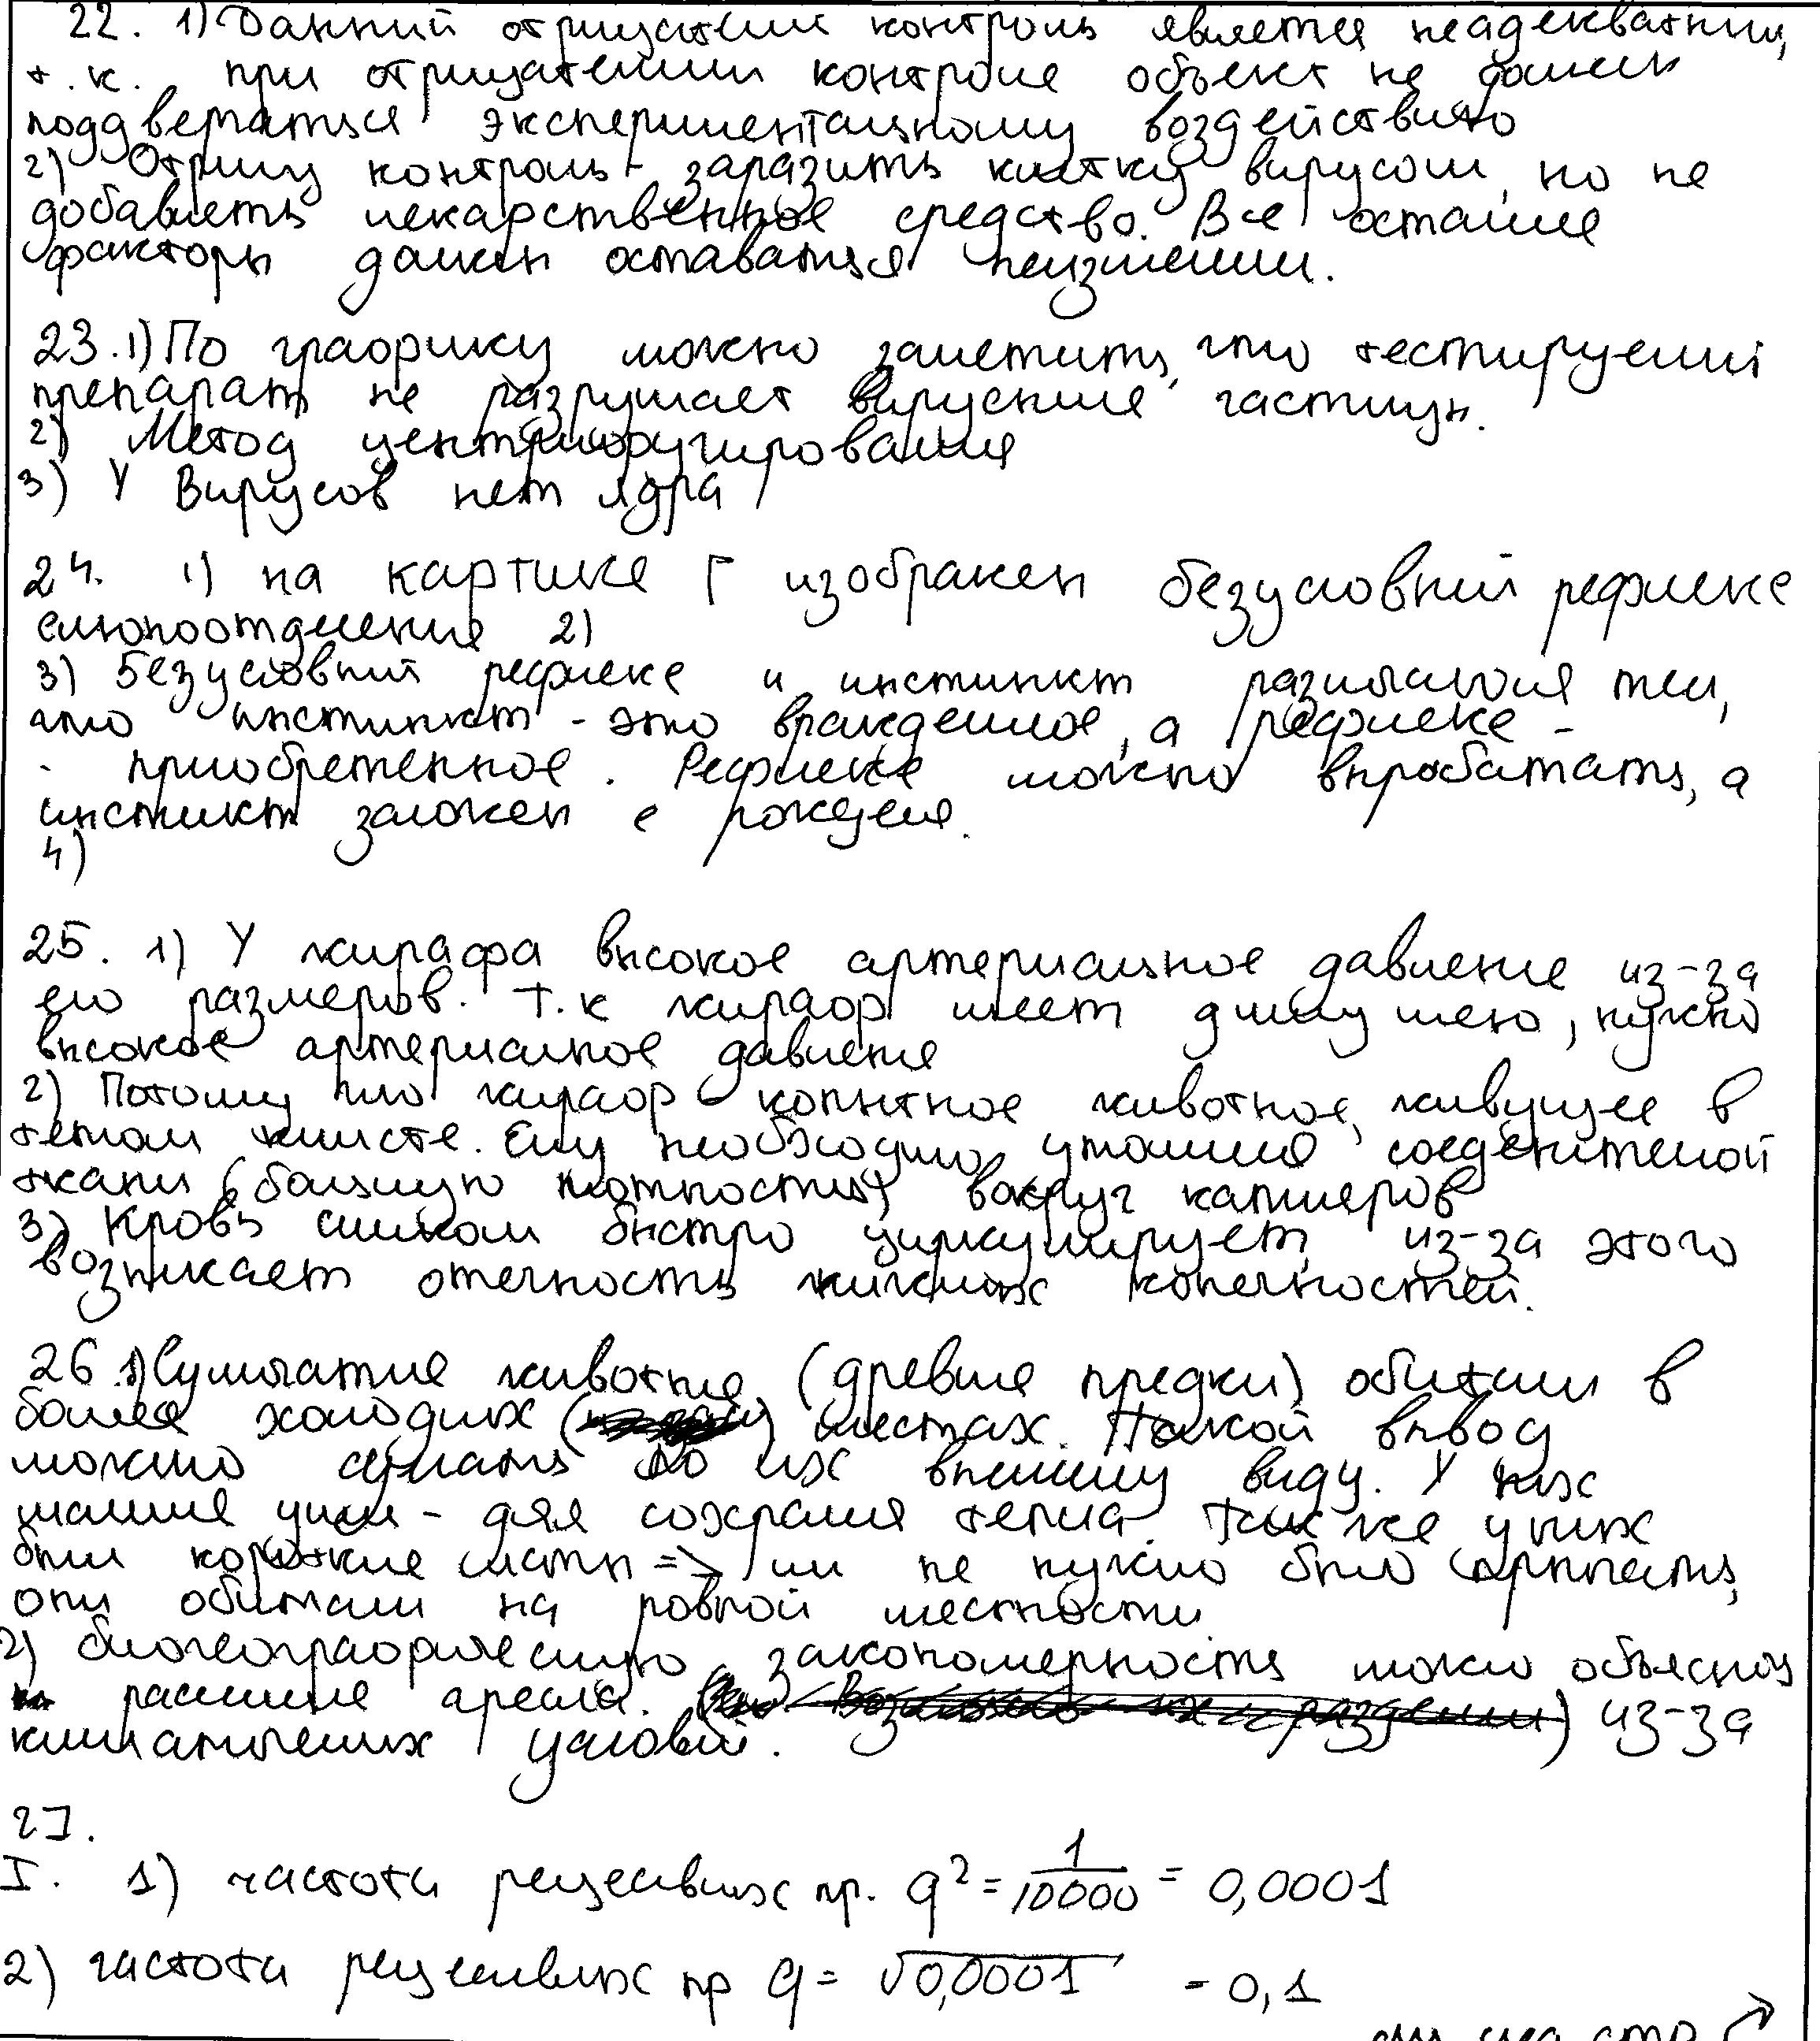 22. 1) Данний отрицательний контроль является неадекватним,
т.к. при отрицательном контроле объект не должен
поддвергаться экспериментальному воздействию
2) Отриц контроль - заразить клетку вирусом, но не
добавлять лекарственное средство. Все осталние
факторы должен оставаться неизменни.
23. 1) По графику можно заметить, что тестируемий
препарат не разрушает вирусние частицы.
2) Метод центрифугирования
3) У вирусов нет ядра
24. 1) на картике Г изображен безусловний рефлекс
слюноотделения 2)
3) Безусловний рефлекс и инстинкт различаются тем,
что инстинкт - это врожденное, а рефлекс -
- приобретенное. Рефлекс можно выработать, а
инстинкт заложен с рождения.
4)
25. 1) У жирафа высокое артериальное давление из-за
его размеров. Т.к жираф имеет длину шею, нужно
высокое артериалное давление
2) Потому что жираф - копытное животное, живущее в
теплом климате. Ему необходимо утолщение соеденителной
ткани (большую плотностью) вокруг капилляров
3) Кровь слишком быстро циркулирует, из-за этого
возникает отечность нижних конечностей.
26 1) Сумчатые животные (древние предки) обитали в
более холодных () местах. Такой вывод
можно сделать по их внешниму виду. У них
малние уши - для сохрания тепла. Так же у них
были короткие лапы => им не нужно было прыгать,
они обитали на ровной местности
2) биогеографическую закономерность можно объяснить
расшиние ареала. из-за
климатических условий.
27.
I. 1) частота рецесивных пр. q² = 1/10000 = 0,0001
2) частота рецесивных пр q = √0,0001 = 0,1
см. след стр ↗